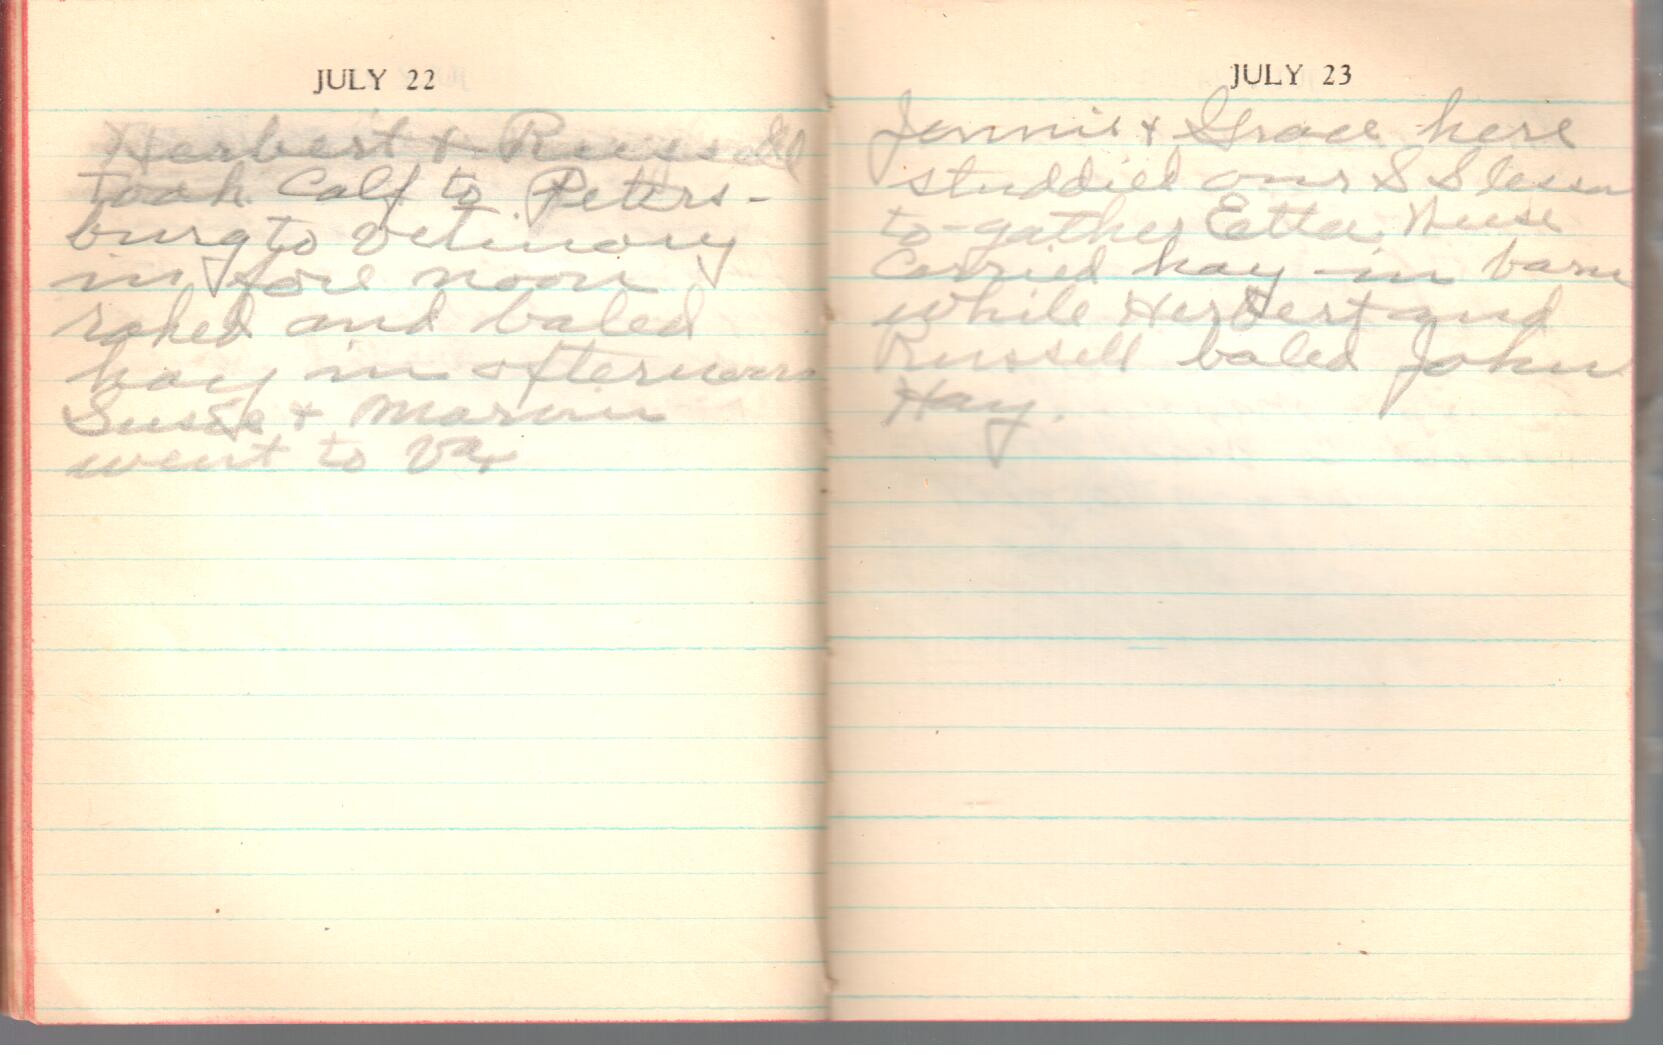 JULY 22
Herbert & Russell
took Calf to Peters-
burg to vetinory
in fore noon
raked and baled
hay in afternoon
Susie & Marvin
went to Va.
JULY 23
Jennie & Grace here
studdied our S S lesson
to-gather Etta,
carried hay in barn
while Herbert and
Russell baled John
Hay.